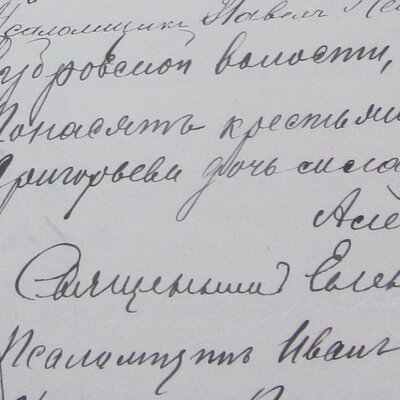 Псаломщикъ Павелъ
убровской волости,
крестьян
Григорьева дочь
Але
Священникъ Евген
Псаломщикъ Иванъ